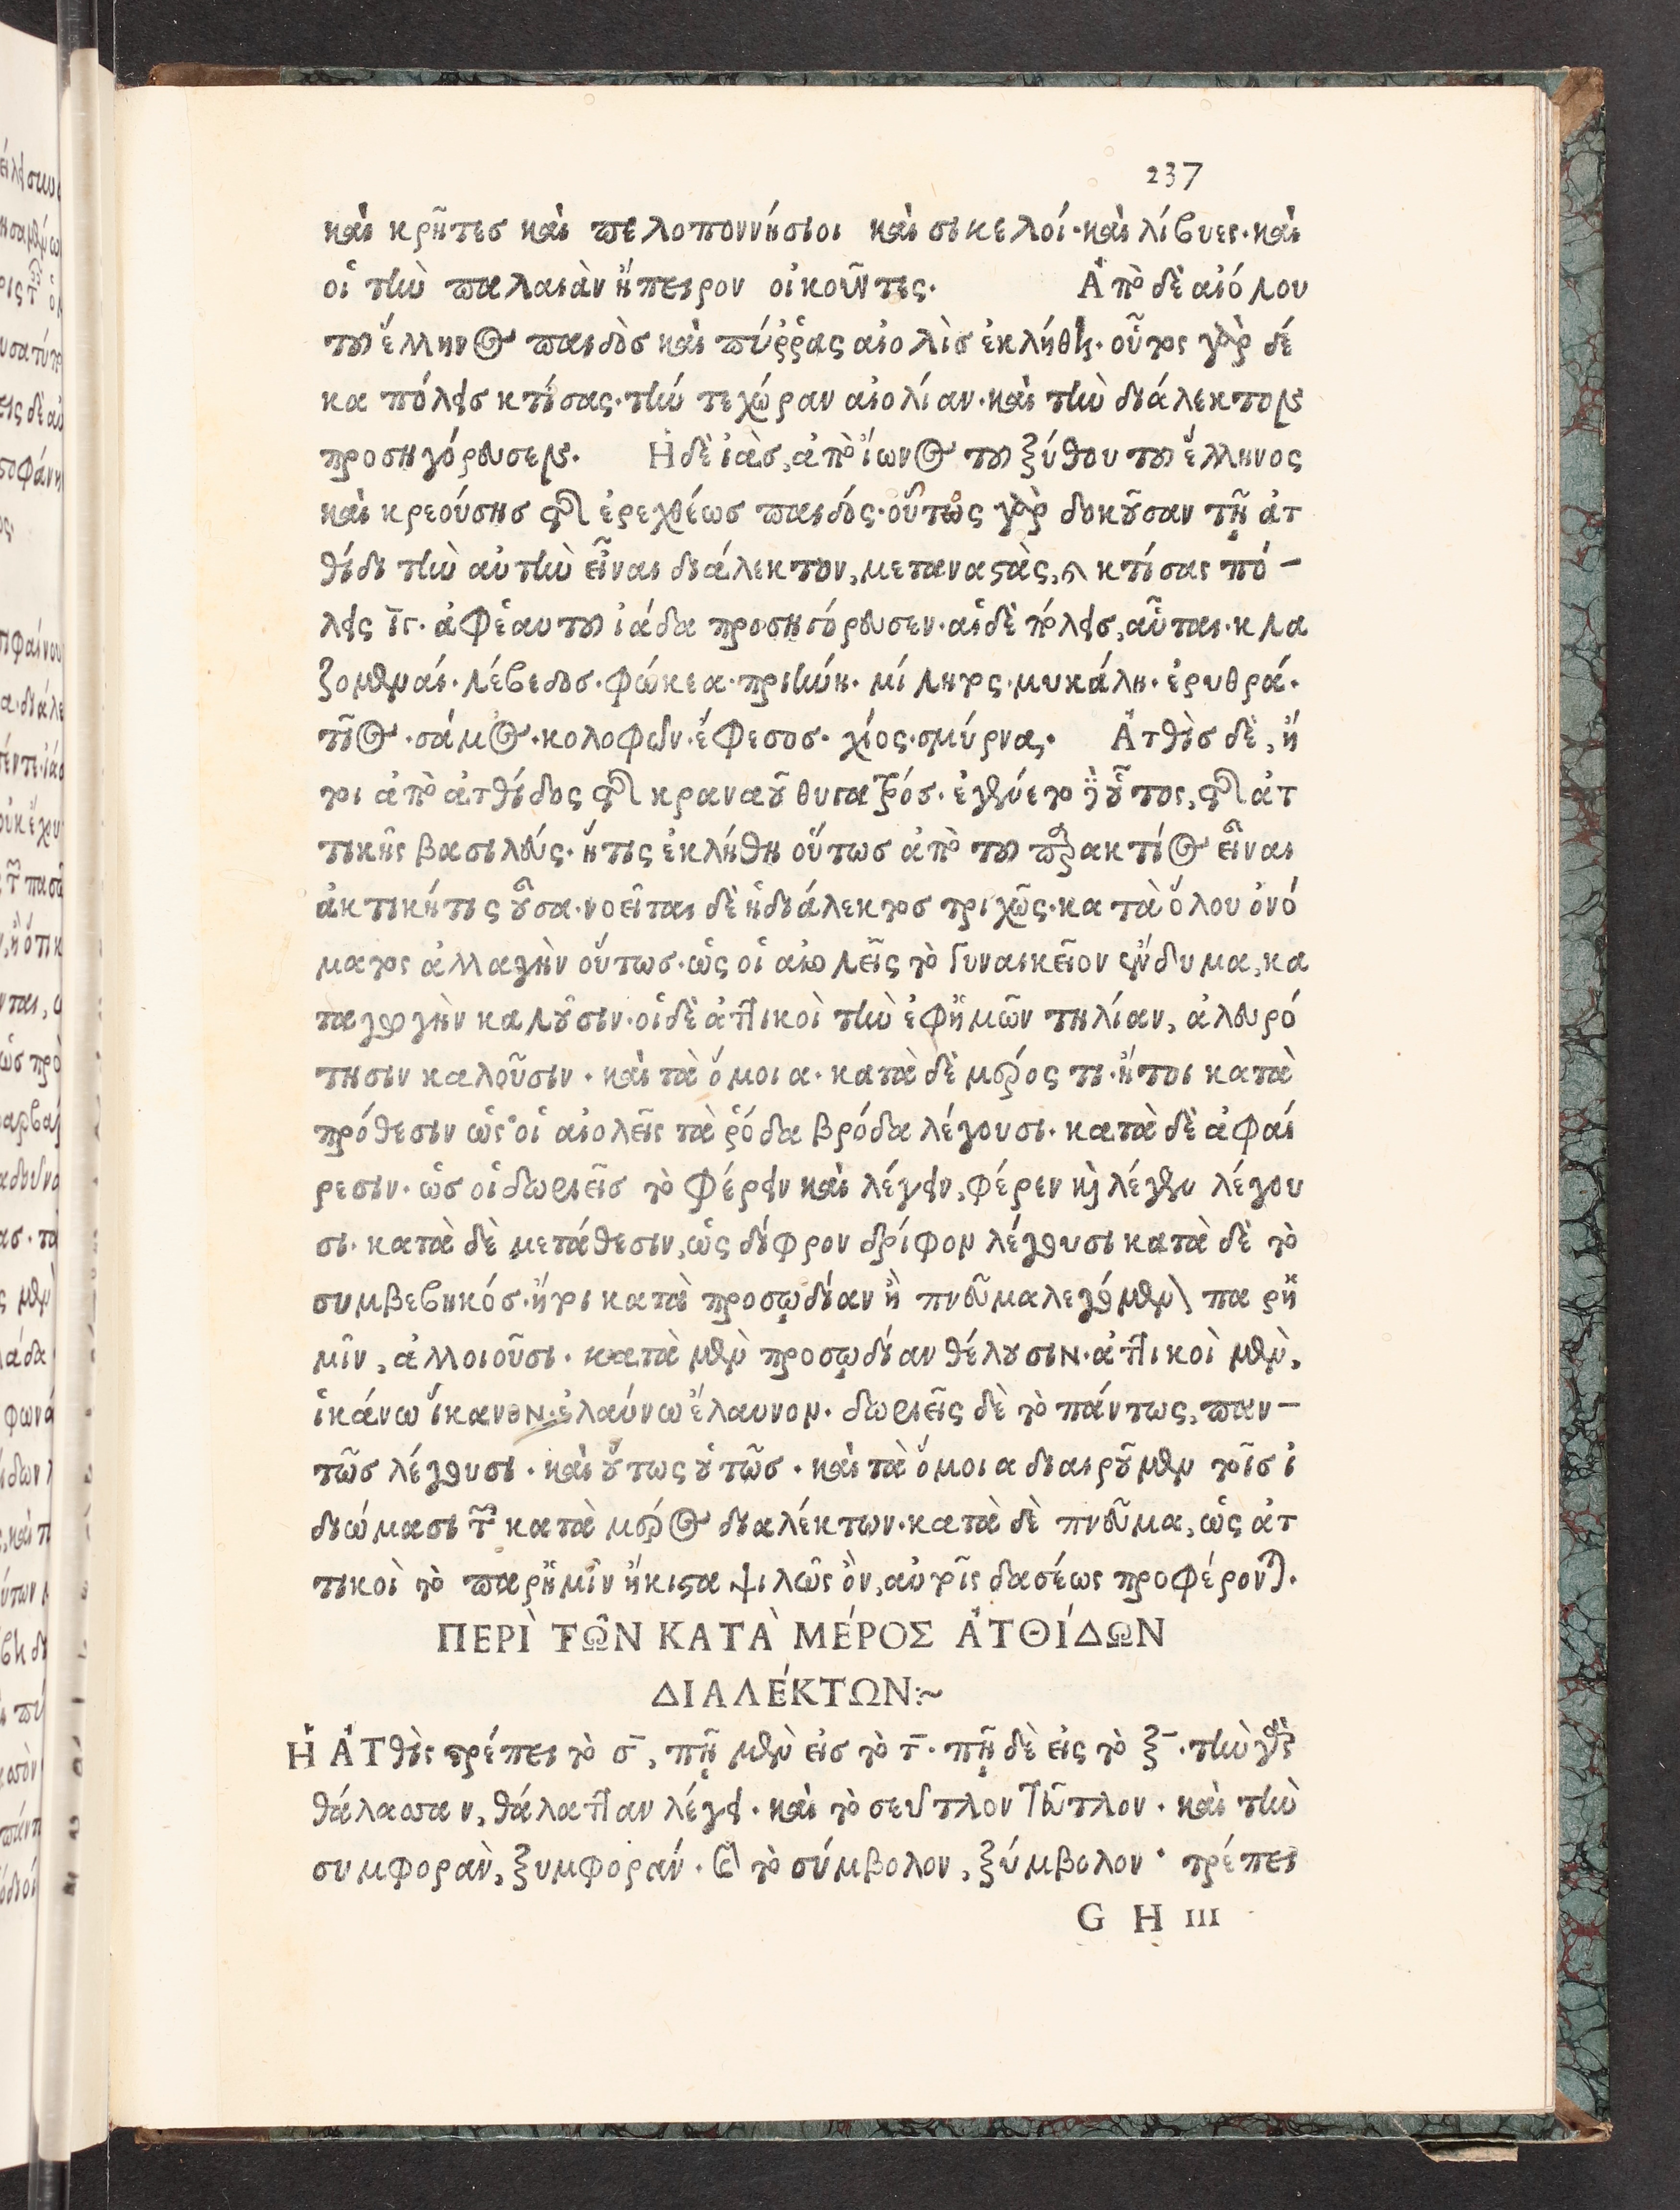 237
καὶ κρῆτεσ καὶ πελοποννήσιοι καὶ σικελοί·καὶ λίβυες·καὶ
οἱ τὴν παλαιὰν ἤπειρον οἰκοῦντες. Ἀπὸ δὲ αἰόλου
τοῦ ἕλληνος παιδὸσ καὶ πύῤῥας αἰολὶσ ἐκλήθη· οὗτος γὰρ δέ
κα πόλεισ κτίσας·τήν τε χώραν αἰολίαν·καὶ τὴν διάλεκτον
προσηγόρευσεν. Ἡ δὲ ἰὰσ,ἀπὸ ἴωνος τοῦ ξύθου τοῦ ἕλληνος
καὶ κρεούσησ τῆς ἐρεχθέωσ παιδός·οὕτως γὰρ δοκοῦσαν τῇ ἀτ
θίδι τὴν αὐτὴν εἶναι διάλεκτον,μεταναστὰς,καὶ κτίσας πό-
λεις ιγ· ἀφ' ἑαυτοῦ ἰάδα προσηγόρευσεν·αἱ δὲ πόλεισ,αὗται·κλα
ζομεναί·λέβεδοσ·φώκεα·πριήνη·μίλητος·μυκάλη·ἐρυθρά·
τῖος·σάμος·κολοφών·ἔφεσοσ·χίος·σμύρνα. Ἀτθὶσ δὲ,ἤ
τοι ἀπὸ ἀτθίδος τῆς κραναοῦ θυγατρόσ·ἐγένετο δὲ οὗτος,τῆς ἀτ
τικῆς βασιλεύς·ἥτις ἐκλήθη οὕτωσ ἀπὸ τοῦ παρακτίος εἶναι
ἀκτικήτις οὖσα·νοεῖται δὲ ἡ διάλεκτοσ τριχῶς·κατὰ ὅλου ὀνό
ματος ἀλλαγὴν οὕτωσ·ὡς οἱ αἰολεῖς τὸ γυναικεῖον ἔνδυμα,κα
ταγωγὴν καλοῦσιν·οἱ δὲ ἀττικοὶ τὴν ἐφ' ἡμῶν τηλίαν, ἀλευρό
τησιν καλοῦσιν·καὶ τὰ ὅμοια·κατὰ δὲ μέρος τι·ἤτοι κατὰ
πρόθεσιν ὡς οἱ αἰολεῖς τὰ ῥόδα βρόδα λέγουσι·κατὰ δὲ ἀφαί
ρεσιν·ὡσ οἱ δωριεῖσ τὸ φέρειν καὶ λέγειν,φέρεν καὶ λέγεν λέγου
σι·κατὰ δὲ μετάθεσιν,ὡς δίφρον δρίφον λέγουσι κατὰ δὲ τὸ
συμβεβηκόσ·ἤτοι κατὰ προσῳδίαν ἢ πνεῦμα λεγόμενα παρ' ἡ
μῖν,ἀλλοιοῦσι·κατὰ μὲν προσῳδίαν θέλουσιν·ἀττικοὶ μὲν,
ἱκάνω ἵκανον·ἐλαύνω ἔλαυνον·δωριεῖς δὲ τὸ πάντως,παν-
τῶσ λέγουσι·καὶ οὕτως οὑτῶσ·καὶ τὰ ὅμοια διαιροῦμεν τοῖσ ἰ
διώμασι τῶν κατὰ μέρος διαλέκτων·κατὰ δὲ πνεῦμα,ὡς ἀτ
τικοὶ τὸ παρ' ἡμῖν ἥκιστα ψιλῶς ὂν,αὐτοῖς δασέως προφέρονται.
ΠΕΡῚ ΤΩ͂Ν ΚΑΤᾺ ΜΈΡΟΣ ἈΤΘΊΔΩΝ
ΔΙΑΛΈΚΤΩΝ:~
Ἡ ἈΤθὶς τρέπει τὸ σ̄, πῇ μὲν εἰσ τὸ τ̄·πῇ δὲ εἰς τὸ ξ̄·τὴν γὰρ
θάλασσαν, θάλατταν λέγει·καὶ τὸ σεῦτλον τεῦτλον·καὶ τὴν
συμφορὰν, ξυμφοράν·καὶ τὸ σύμβολον, ξύμβολον· τρέπει
G H III